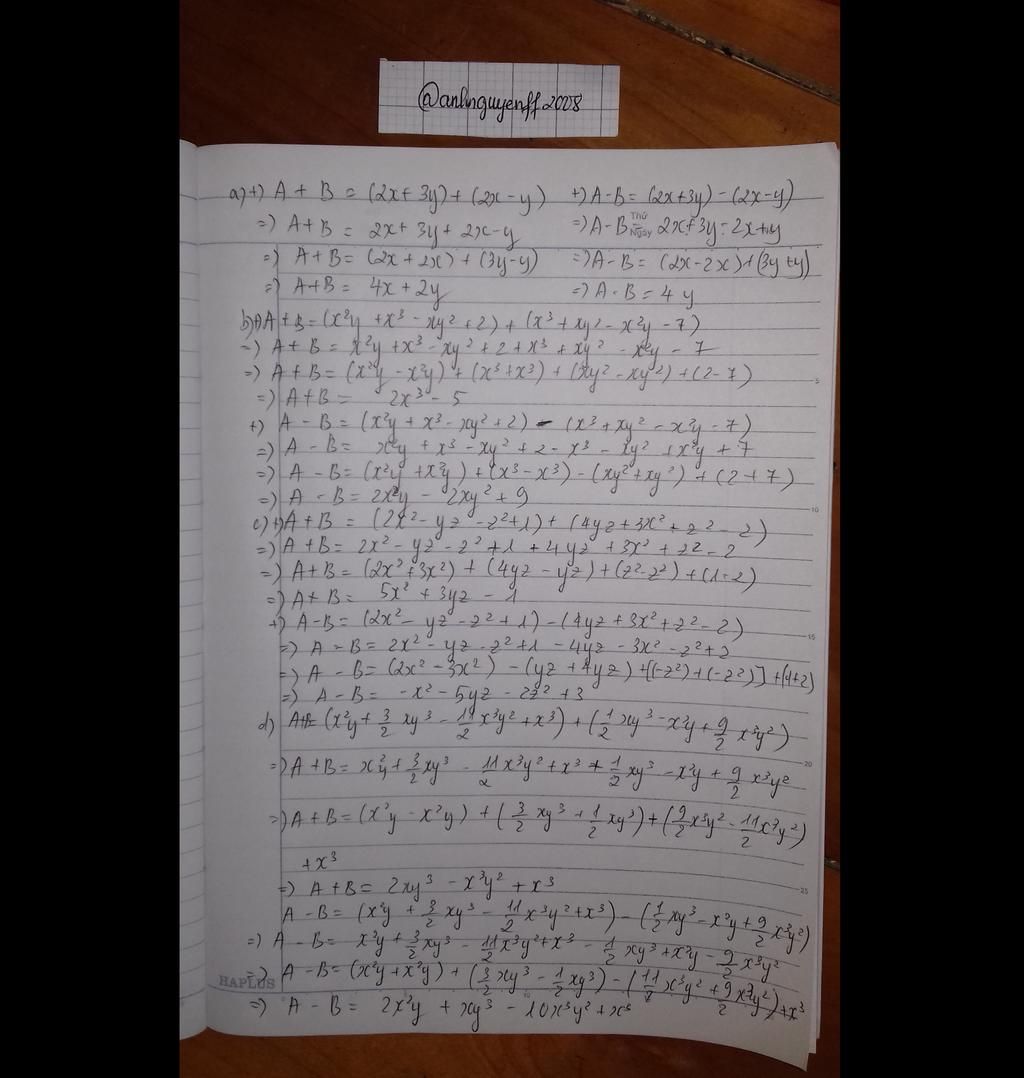 @anhnguyenff2008
a) +) A + B = (2x + 3y) + (2x - y)   +) A - B = (2x + 3y) - (2x - y)
=) A + B = 2x + 3y + 2x - y   =) A - B = 2x + 3y - 2x + y
Thứ
Ngày
=) A + B = (2x + 2x) + (3y - y)   =) A - B = (2x - 2x) + (3y + y)
=) A + B = 4x + 2y   =) A - B = 4y
b) +) A + B = (x²y + x³ - xy² + 2) + (x³ + xy² - x²y - 7)
=) A + B = x²y + x³ - xy² + 2 + x³ + xy² - x²y - 7
=) A + B = (x²y - x²y) + (x³ + x³) + (xy² - xy²) + (2 - 7)
5
=) A + B = 2x³ - 5
+) A - B = (x²y + x³ - xy² + 2) - (x³ + xy² - x²y - 7)
=) A - B = x²y + x³ - xy² + 2 - x³ - xy² + x²y + 7
=) A - B = (x²y + x²y) + (x³ - x³) - (xy² + xy²) + (2 + 7)
=) A - B = 2x²y - 2xy² + 9
10
c) +) A + B = (2x² - yz - z² + 1) + (4yz + 3x² + z² - 2)
=) A + B = 2x² - yz - z² + 1 + 4yz + 3x² + z² - 2
=) A + B = (2x² + 3x²) + (4yz - yz) + (z² - z²) + (1 - 2)
=) A + B = 5x² + 3yz - 1
+) A - B = (2x² - yz - z² + 1) - (4yz + 3x² + z² - 2)
15
=) A - B = 2x² - yz - z² + 1 - 4yz - 3x² - z² + 2
=) A - B = (2x² - 3x²) - (yz + 4yz) + [(-z²) + (-z²)] + (1 + 2)
=) A - B = -x² - 5yz - 2z² + 3
d) A + B = (x²y + 3/2 xy³ - 11/2 x³y² + x³) + (1/2 xy³ - x²y + 9/2 x³y²)
20
=) A + B = x²y + 3/2 xy³ - 11/2 x³y² + x³ + 1/2 xy³ - x²y + 9/2 x³y²
=) A + B = (x²y - x²y) + (3/2 xy³ + 1/2 xy³) + (9/2 x³y² - 11/2 x³y²)
+ x³
=) A + B = 2xy³ - x³y² + x³
25
A - B = (x²y + 3/2 xy³ - 11/2 x³y² + x³) - (1/2 xy³ - x²y + 9/2 x³y²)
=) A - B = x²y + 3/2 xy³ - 11/2 x³y² + x³ - 1/2 xy³ + x²y - 9/2 x³y²
=) A - B = (x²y + x²y) + (3/2 xy³ - 1/2 xy³) - (11/2 x³y² + 9/2 x³y²) + x³
HAPLUS
=) A - B = 2x²y + xy³ - 10x³y² + x³